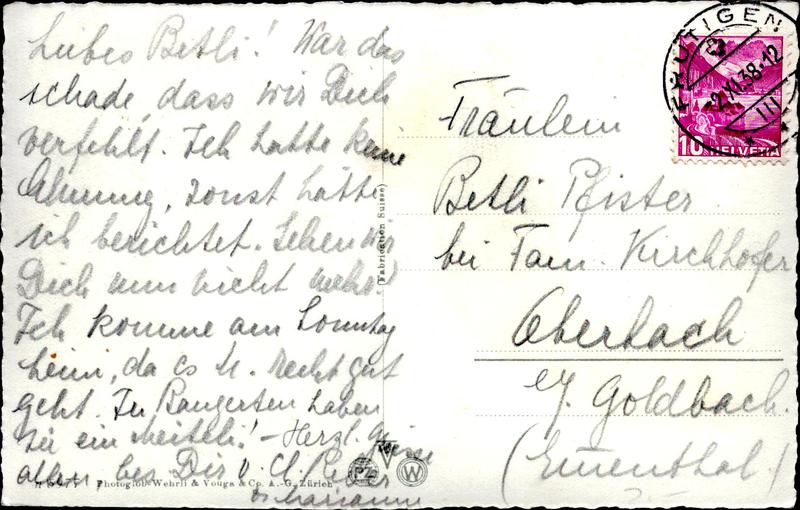 Liebes Betli! War das
schade, dass wir Dich
verfehlt. Ich hatte keine
Ahnung, sonst hätte
ich berichtet. Sehen wir
Dich nun nicht mehr?
Ich komme am Sonntag
heim, da es M. recht gut
geht. In Bangerten haben
sie ein Meiteli! – Herzl. Grüsse
allen, bes. Dir v. Cl.
Marianne
(Fabrication Suisse)
Photoglob-Wehrli & Vouga & Co. A.-G. Zürich
PZ
V
W
FRUTIGEN
-2.XI.38-12
III
10 HELVETIA
Fräulein
Betli Pfister
bei Fam. Kirchhofer
Oberbach
b/ Goldbach.
(Emmenthal)